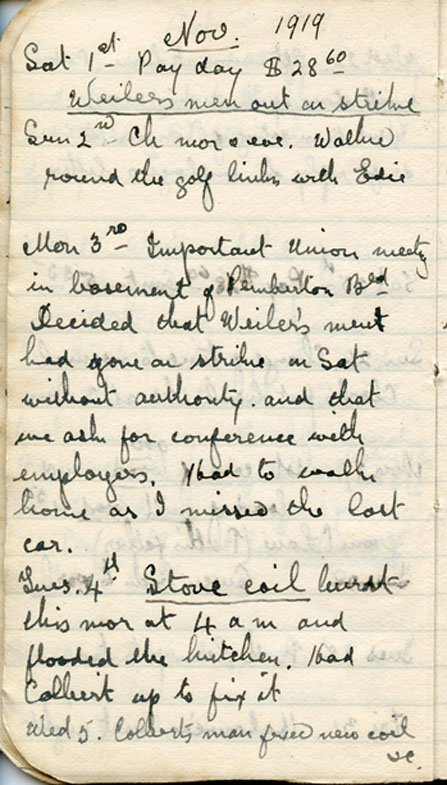 Nov. 1919
Sat 1st Pay day $28 60
Weilers men out on strike
Sun 2nd Ch mor & eve. Walked
round the golf links with Edie
Mon 3rd Important Union meetg
in basement of Pemberton Bld
Decided that Weiler's men
had gone on strike on Sat
without authority. and that
we ask for conference with
employers. Had to walk
home as I missed the last
car.
Tues. 4th Stove coil burst
this mor at 4 a m and
flooded the kitchen. Had
Colbert up to fix it
Wed 5. Colberts man fixed new coil